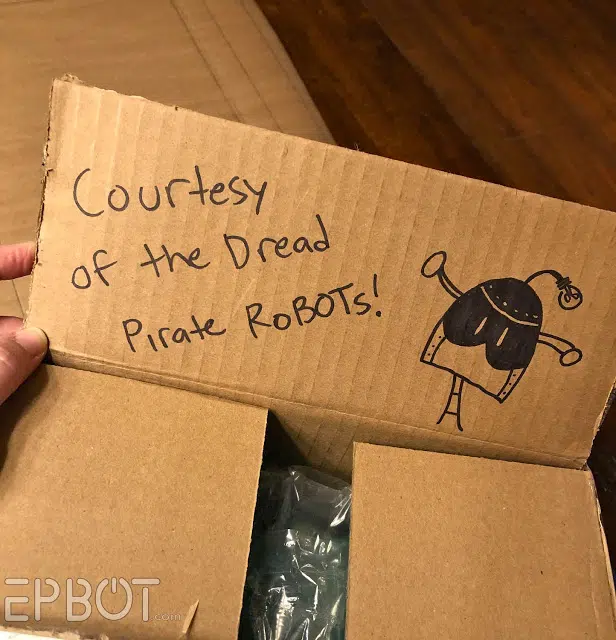 Courtesy
of the Dread
Pirate RoBOTs!
EPBOT.com